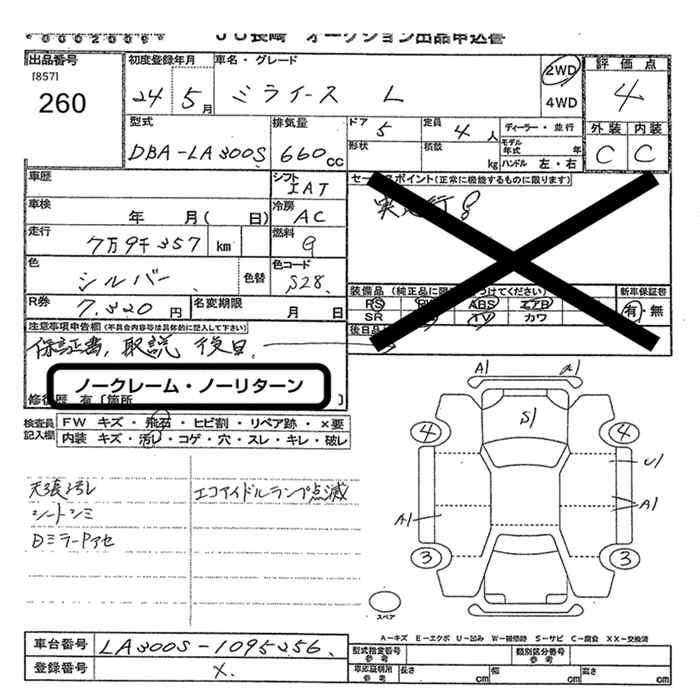 0002006
JU長崎 オークション出品申込書
出品番号
[857]
260
初度登録年月
24 5月
車名・グレード
ミライース L
2WD
4WD
評価点
4
外装 内装
C C
型式
DBA-LA300S
排気量
660cc
ドア
5
定員
4人
ディーラー・並行
形状
積数
kg
モデル年式
年
ハンドル 左・右
車歴
シフト
IAT
セールスポイント(正常に機能するものに限ります)
車検
年 月( 日)
冷房
AC
走行
7万9千357 km
燃料
G
色
シルバー
色替
色コード
S28
装備品
新車保証書
有・無
PS
ABS エアB
SR
TV カワ
R券
7,320円
名変期限
月 日
後日品
注意事項申告欄(不具合内容等は具体的に記入して下さい)
保証書, 取説 後日
ノークレーム・ノーリターン
修復歴 有〔箇所 〕
検査員記入欄
FW キズ・飛石・ヒビ割・リペア跡・×要
内装 キズ・汚レ・コゲ・穴・スレ・キレ・破レ
天張汚レ
シートシミ
DミラーPアセ
エコアイドルランプ点滅
A1 A1
S1
4 4
U1
A1
A1
3 3
スペア
A-キズ E-エクボ U-凹み W-補修跡 S-サビ C-腐食 XX-交換済
車台番号
LA300S-1095256
登録番号
X
型式指定番号
参考
類別区分番号
参考
車庫証明用
参考
長さ cm
幅 cm
高さ cm